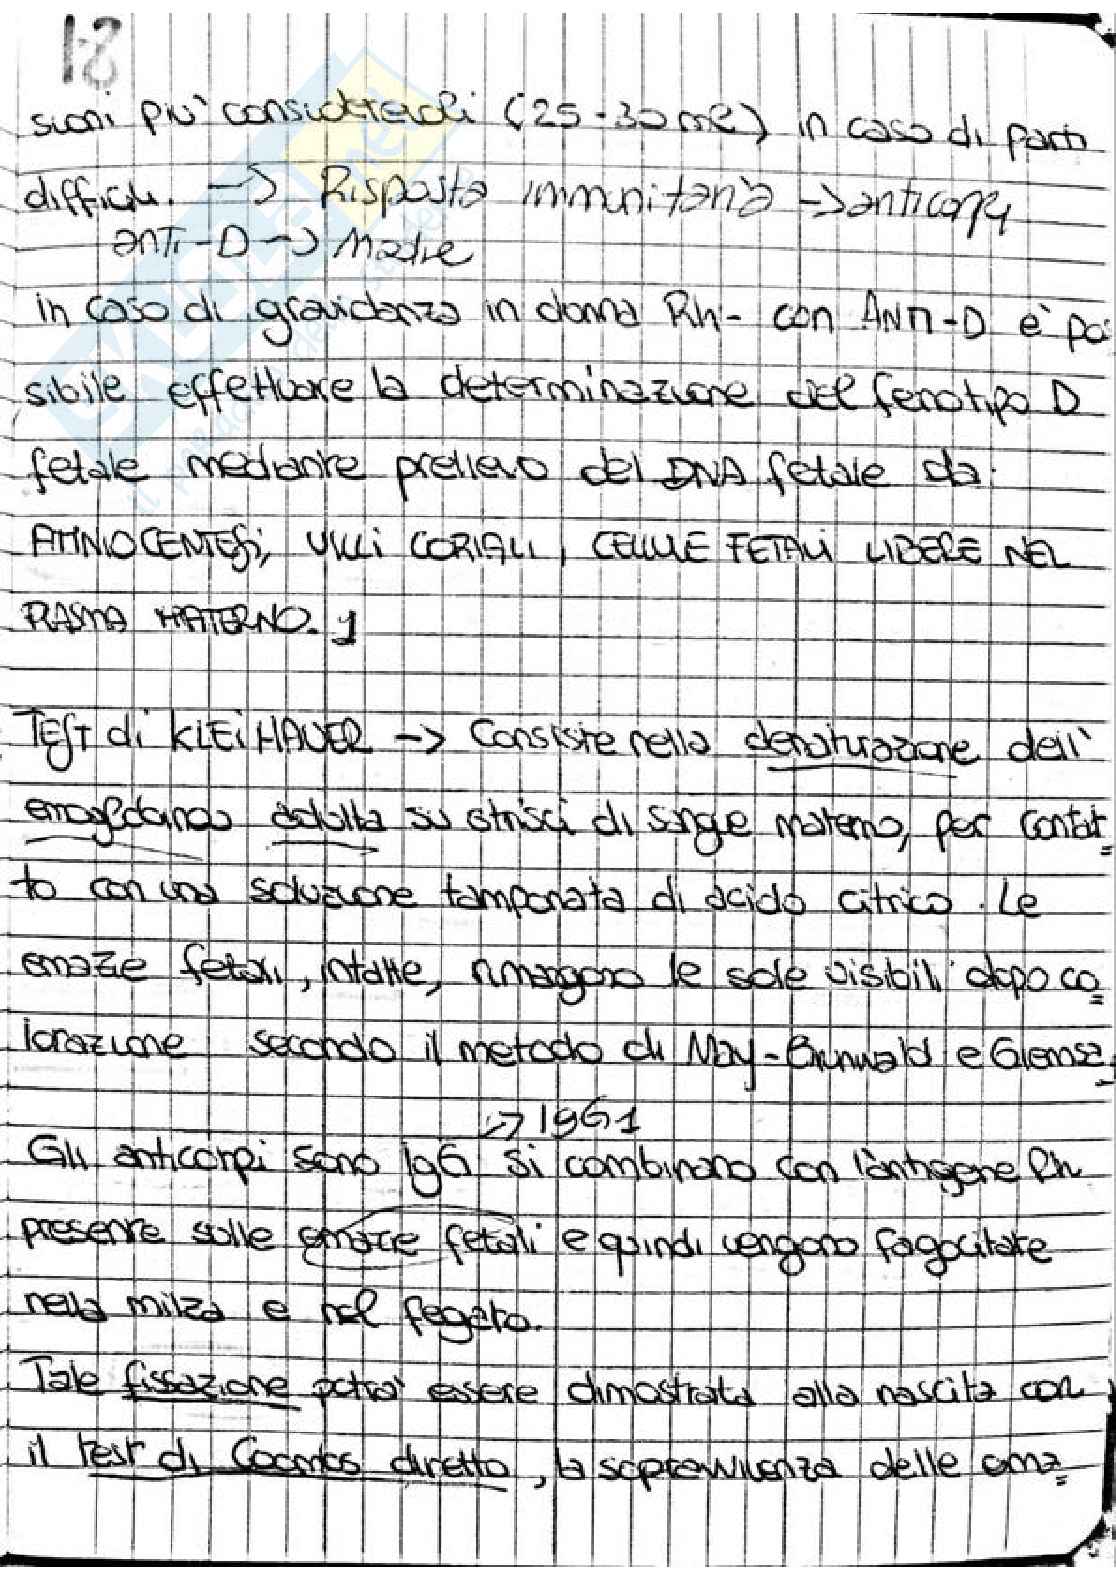 18
sioni più considerevoli (25-30 ml) in caso di parti
difficili. -> Risposta immunitaria -> anticorpi
anti-D -> Madre
in caso di gravidanza in donna Rh- con ANTI-D è pos
sibile effettuare la determinazione del fenotipo D
fetale mediante prelievo del DNA fetale da:
AMNIOCENTESI, VILLI CORIALI, CELLULE FETALI LIBERE NEL
PLASMA MATERNO.
TEST di KLEIHAUER -> Consiste nella denaturazione dell'
emoglobina adulta su strisci di sangue materno, per contat
to con una soluzione tamponata di acido citrico. Le
emazie fetali, intatte, rimangono le sole visibili dopo co
lorazione secondo il metodo di May-Grunwald e Giemsa.
-> IgG1
Gli anticorpi sono IgG si combinano con l'antigene Rh
presente sulle emazie fetali e quindi vengono fagocitate
nella milza e nel fegato.
Tale fissazione potrà essere dimostrata alla nascita con
il test di Coombs diretto, la sopravvivenza delle ema